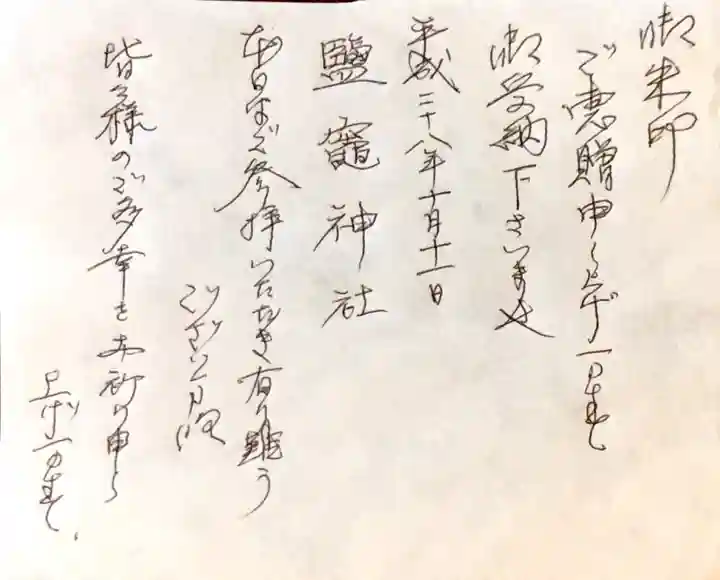 御朱印
ご恵贈申し上げます
御受納下さいませ
平成二十八年十月十一日
鹽竈神社
本日はご参拝いただき有り難う
ございます
皆々様のご多幸をお祈り申し
上げます。